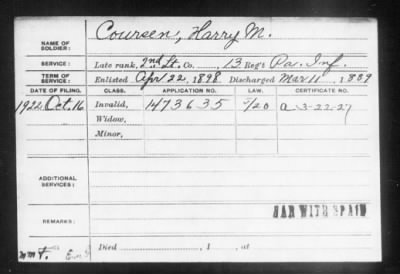 NAME OF SOLDIER: Coursen, Harry M.
SERVICE: Late rank, 2nd Lt. Co. 13 Reg't Pa. Inf.
TERM OF SERVICE: Enlisted Apr 22, 1898 Discharged Mar 11, 1889
DATE OF FILING. CLASS. APPLICATION NO. LAW. CERTIFICATE NO.
1922 Oct. 16 Invalid, 1473635
Widow,
Minor,
ADDITIONAL SERVICES:
WAR WITH SPAIN
REMARKS:
Died , 1 , at